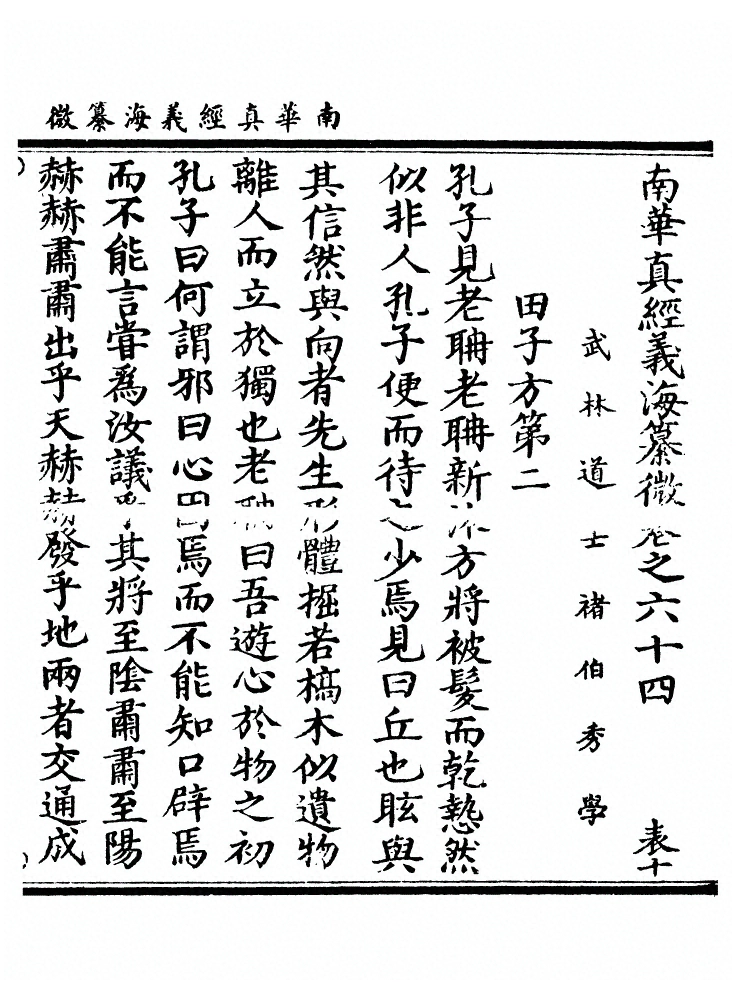 南華真經義海纂微
南華真經義海纂微卷之六十四　表十
武林道士褚伯秀學
田子方第二
孔子見老聃老聃新沐方將被髮而乾慹然
似非人孔子便而待之少焉見曰丘也眩與
其信然與向者先生形體掘若槁木似遺物
離人而立於獨也老聃曰吾遊心於物之初
孔子曰何謂邪曰心困焉而不能知口辟焉
而不能言嘗爲汝議乎其將至陰肅肅至陽
赫赫肅肅出乎天赫赫發乎地兩者交通成